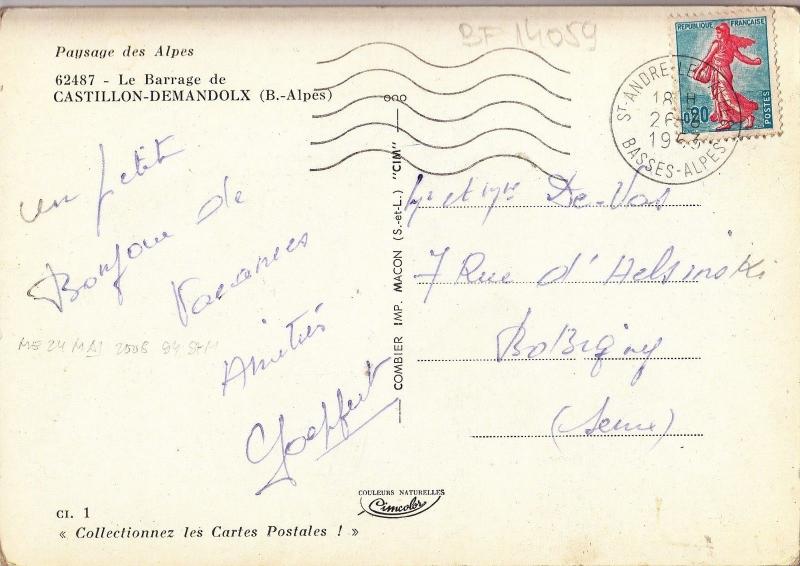 BF 14059
Paysage des Alpes
62487 - Le Barrage de
CASTILLON-DEMANDOLX (B.-Alpes)
un petit
Bonjour de
Vacances
Amitiés
Goeffert
ME 24 MAI 2008 94 StM
CI. 1
« Collectionnez les Cartes Postales ! »
COMBIER IMP. MACON (S.-et-L.) "CIM"
COULEURS NATURELLES
Cimcolor
RÉPUBLIQUE FRANÇAISE
0,20
POSTES
ST-ANDRE-LE
18 H
26-8
19
BASSES-ALPES
Mr et Mme De-Vos
7 Rue d'Helsinski
BoBigny
(Seine)